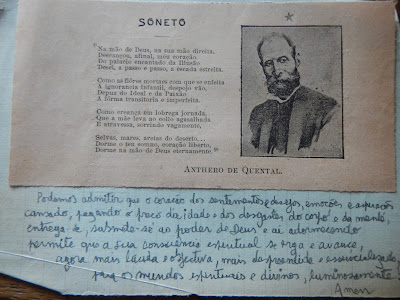 SONETO
Na mão de Deus, na sua mão direita,
Descançou, afinal, meu coração.
Do palacio encantado da Illusão
Desci, a passo e passo, a escada estreita.
Como as flôres mortaes com que se enfeita
A ignorancia infantil, despojo vão,
Depuz do Ideal e da Paixão
A fórma transitoria e imperfeita.
Como creança em lobrega jornada,
Que a mãe leva no collo agasalhada
E atravessa, sorrindo vagamente,
Selvas, mares, areias do deserto...
Dorme o teu somno, coração liberto,
Dorme na mão de Deus eternamente.
ANTHERO DE QUENTAL.
Podemos admitir que o coração dos sentimentos e desejos, emoções e aspirações
cansado, pagando o preço da idade e dos desgastes do corpo e da mente,
entrega-se, submete-se ao poder de Deus e aí adormecendo
permite que a Sua consciência espiritual se erga e avance,
agora mais lúcida e objectiva, mais desprendida e essencializada,
para os mundos espirituais e divinos, luminosamente
Amen